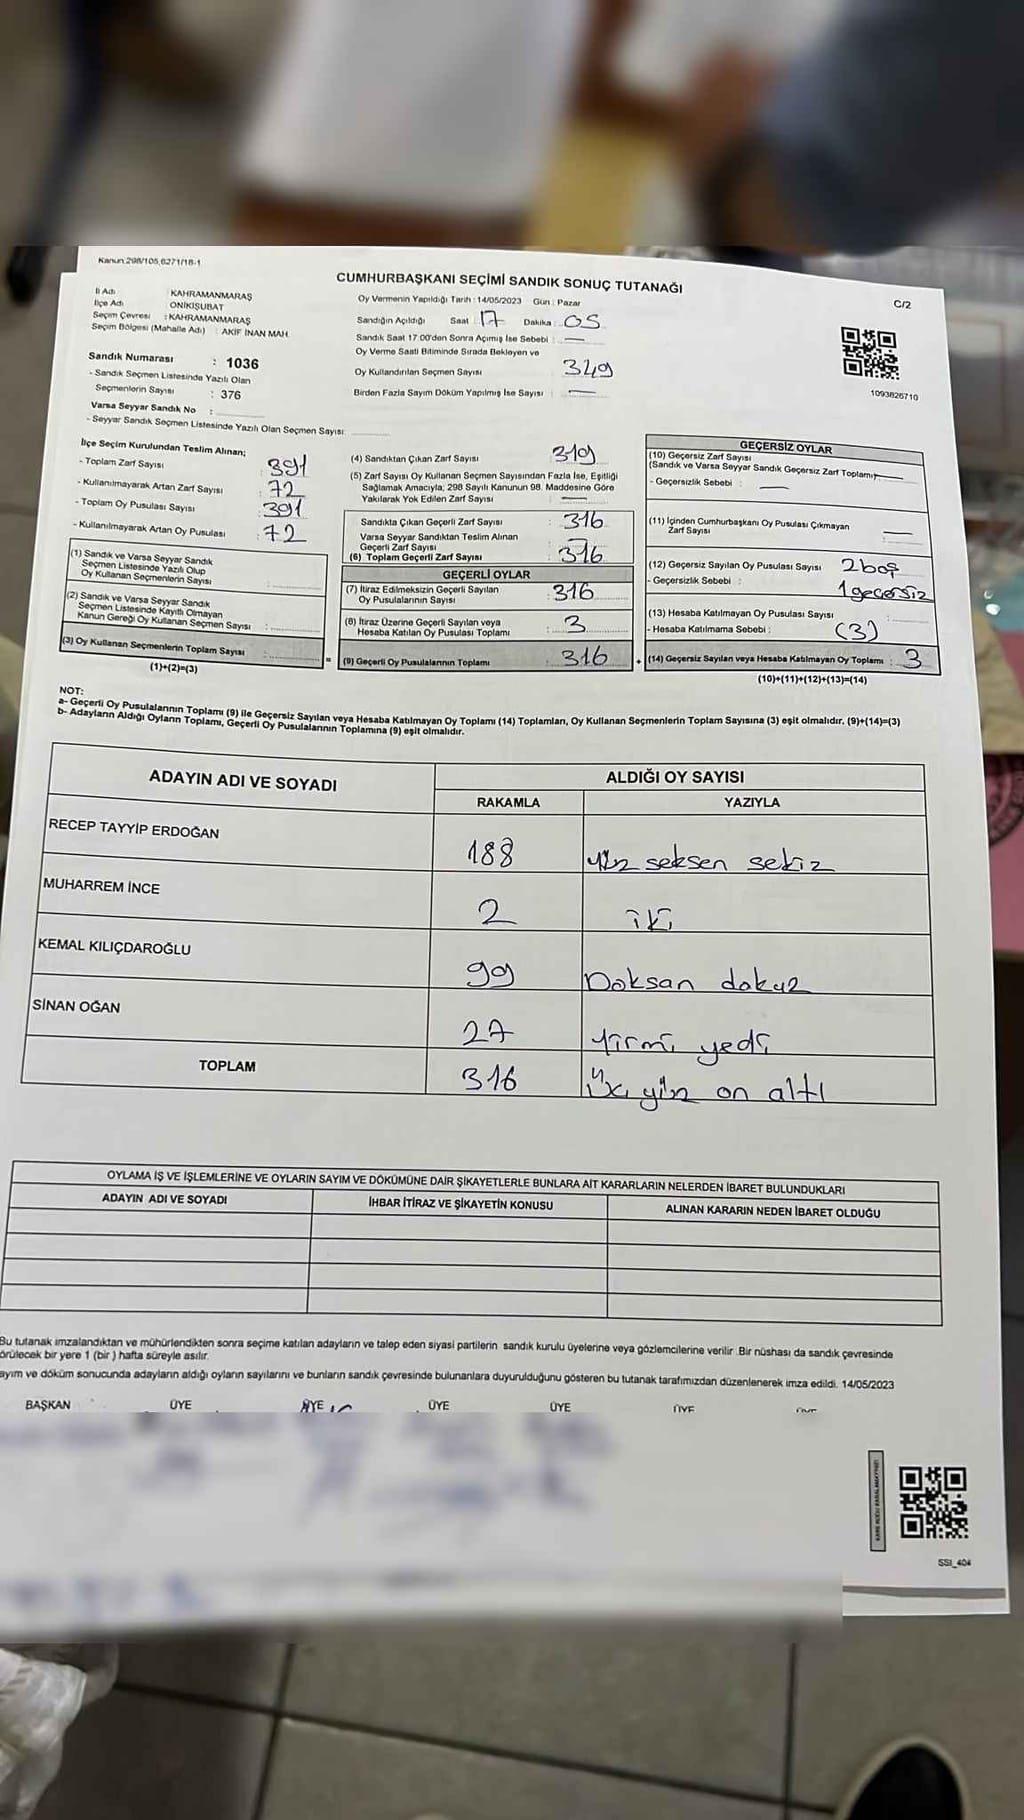 Kanun:298/105,6271/18-1
CUMHURBAŞKANI SEÇİMİ SANDIK SONUÇ TUTANAĞI
C/2
İl Adı : KAHRAMANMARAŞ
İlçe Adı : ONİKİŞUBAT
Seçim Çevresi : KAHRAMANMARAŞ
Seçim Bölgesi (Mahalle Adı) : AKİF İNAN MAH.
Sandık Numarası : 1036
- Sandık Seçmen Listesinde Yazılı Olan
Seçmenlerin Sayısı : 376
Varsa Seyyar Sandık No :
- Seyyar Sandık Seçmen Listesinde Yazılı Olan Seçmen Sayısı:
Oy Vermenin Yapıldığı Tarih : 14/05/2023 Gün : Pazar
Sandığın Açıldığı Saat 17 Dakika : 05
Sandık Saat 17:00'den Sonra Açımış İse Sebebi : —
Oy Verme Saati Bitiminde Sırada Bekleyen ve
Oy Kullandırılan Seçmen Sayısı 349
Birden Fazla Sayım Döküm Yapılmış İse Sayısı : —
1093826710
İlçe Seçim Kurulundan Teslim Alınan;
- Toplam Zarf Sayısı : 391
- Kullanılmayarak Artan Zarf Sayısı : 72
- Toplam Oy Pusulası Sayısı : 391
- Kullanılmayarak Artan Oy Pusulası : 72
(1) Sandık ve Varsa Seyyar Sandık
Seçmen Listesinde Yazılı Olup
Oy Kullanan Seçmenlerin Sayısı :
(2) Sandık ve Varsa Seyyar Sandık
Seçmen Listesinde Kayıtlı Olmayan
Kanun Gereği Oy Kullanan Seçmen Sayısı :
(3) Oy Kullanan Seçmenlerin Toplam Sayısı :
(1)+(2)=(3)
(4) Sandıktan Çıkan Zarf Sayısı : 319
(5) Zarf Sayısı Oy Kullanan Seçmen Sayısından Fazla İse, Eşitliği
Sağlamak Amacıyla; 298 Sayılı Kanunun 98. Maddesine Göre
Yakılarak Yok Edilen Zarf Sayısı : —
Sandıkta Çıkan Geçerli Zarf Sayısı : 316
Varsa Seyyar Sandıktan Teslim Alınan
Geçerli Zarf Sayısı : —
(6) Toplam Geçerli Zarf Sayısı : 316
GEÇERLİ OYLAR
(7) İtiraz Edilmeksizin Geçerli Sayılan
Oy Pusulalarının Sayısı : 316
(8) İtiraz Üzerine Geçerli Sayılan veya
Hesaba Katılan Oy Pusulası Toplamı : 3
= (9) Geçerli Oy Pusulalarının Toplamı : 316 +
GEÇERSİZ OYLAR
(10) Geçersiz Zarf Sayısı
(Sandık ve Varsa Seyyar Sandık Geçersiz Zarf Toplamı): —
- Geçersizlik Sebebi : —
(11) İçinden Cumhurbaşkanı Oy Pusulası Çıkmayan
Zarf Sayısı : —
(12) Geçersiz Sayılan Oy Pusulası Sayısı : 2 boş
- Geçersizlik Sebebi : 1 geçersiz
(13) Hesaba Katılmayan Oy Pusulası Sayısı :
- Hesaba Katılmama Sebebi : (3)
(14) Geçersiz Sayılan veya Hesaba Katılmayan Oy Toplamı : 3
(10)+(11)+(12)+(13)=(14)
NOT:
a- Geçerli Oy Pusulalarının Toplamı (9) ile Geçersiz Sayılan veya Hesaba Katılmayan Oy Toplamı (14) Toplamları, Oy Kullanan Seçmenlerin Toplam Sayısına (3) eşit olmalıdır. (9)+(14)=(3)
b- Adayların Aldığı Oyların Toplamı, Geçerli Oy Pusulalarının Toplamına (9) eşit olmalıdır.
ADAYIN ADI VE SOYADI ALDIĞI OY SAYISI
RAKAMLA YAZIYLA
RECEP TAYYİP ERDOĞAN 188 yüz seksen sekiz
MUHARREM İNCE 2 iki
KEMAL KILIÇDAROĞLU 99 Doksan dokuz
SİNAN OĞAN 27 yirmi yedi
TOPLAM 316 Üç yüz on altı
OYLAMA İŞ VE İŞLEMLERİNE VE OYLARIN SAYIM VE DÖKÜMÜNE DAİR ŞİKAYETLERLE BUNLARA AİT KARARLARIN NELERDEN İBARET BULUNDUKLARI
ADAYIN ADI VE SOYADI İHBAR İTİRAZ VE ŞİKAYETİN KONUSU ALINAN KARARIN NEDEN İBARET OLDUĞU
Bu tutanak imzalandıktan ve mühürlendikten sonra seçime katılan adayların ve talep eden siyasi partilerin sandık kurulu üyelerine veya gözlemcilerine verilir .Bir nüshası da sandık çevresinde
örülecek bir yere 1 (bir ) hafta süreyle asılır.
ayım ve döküm sonucunda adayların aldığı oyların sayılarını ve bunların sandık çevresinde bulunanlara duyurulduğunu gösteren bu tutanak tarafımızdan düzenlenerek imza edildi. 14/05/2023
BAŞKAN ÜYE ÜYE ÜYE ÜYE ÜYE ÜYE
SSI_404